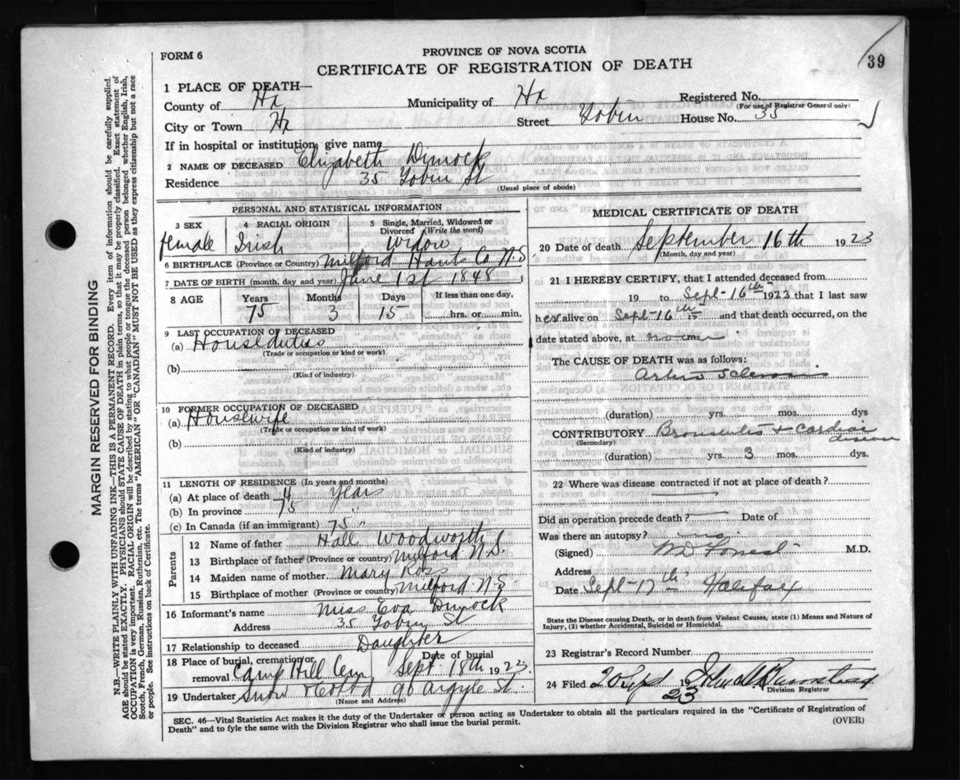 39
FORM 6
PROVINCE OF NOVA SCOTIA
CERTIFICATE OF REGISTRATION OF DEATH
MARGIN RESERVED FOR BINDING
N.B.—WRITE PLAINLY WITH UNFADING INK—THIS IS A PERMANENT RECORD. Every item of information should be carefully supplied.
AGE should be stated EXACTLY. PHYSICIANS should STATE CAUSE OF DEATH in plain terms, so that it may be properly classified. Exact statement of
OCCUPATION is very important. RACIAL ORIGIN will be described by stating to what people or tongue the deceased person belonged whether English, Irish,
Scotch, French, German, Russian, Ruthenian, etc. The terms "AMERICAN" OR "CANADIAN" MUST NOT BE USED as they express citizenship but not a race
or people. See instructions on back of Certificate.
1 PLACE OF DEATH—
County of Hx Municipality of Hx Registered No.
(For use of Registrar General only)
City or Town Hx Street Tobin House No. 35
If in hospital or institution, give name
2 NAME OF DECEASED Elizabeth Dimock
Residence 35 Tobin St
(Usual place of abode)
PERSONAL AND STATISTICAL INFORMATION
3 SEX 4 RACIAL ORIGIN 5 Single, Married, Widowed or Divorced (Write the word)
female Irish Widow
6 BIRTHPLACE (Province or Country) Milford Hants Co N.S
7 DATE OF BIRTH (month, day and year) June 1st 1848
8 AGE Years Months Days If less than one day,
75 3 15 hrs. or min.
9 LAST OCCUPATION OF DECEASED
(a) House duties
(Trade or occupation or kind or work)
(b)
(Kind of industry)
10 FORMER OCCUPATION OF DECEASED
(a) Housewife
(Trade or occupation or kind or work)
(b)
(Kind of industry)
11 LENGTH OF RESIDENCE (In years and months)
(a) At place of death 4 years
(b) In province 75 "
(c) In Canada (if an immigrant) 75 "
Parents
12 Name of father Hall Woodworth
13 Birthplace of father (Province or country) Milford N.S.
14 Maiden name of mother Mary Ross
15 Birthplace of mother (Province or country) Milford N.S
16 Informant's name Miss Eva Dimock
Address 35 Tobin St
17 Relationship to deceased Daughter
18 Place of burial, cremation or removal Camp Hill Cem Date of burial Sept 18th 1923
19 Undertaker Snow & Co Ltd 90 Argyle St.
(Name and Address)
MEDICAL CERTIFICATE OF DEATH
20 Date of death September 16th 1923
(Month, day and year)
21 I HEREBY CERTIFY, that I attended deceased from
19 to Sept-16th 1923 that I last saw
her alive on Sept-16th and that death occurred, on
date stated above, at m
The CAUSE OF DEATH was as follows:
Arterio Sclerosis
(duration) yrs. mos. dys
CONTRIBUTORY Bronchitis & Cardiac disease
(Secondary)
(duration) yrs. 3 mos. dys.
22 Where was disease contracted if not at place of death?
Did an operation precede death? Date of
Was there an autopsy? no
(Signed) WD Forrest M.D.
Address
Date Sept-17th Halifax
State the Disease causing Death, or in death from Violent Causes, state (1) Means and Nature of
Injury, (2) whether Accidental, Suicidal or Homicidal.
23 Registrar's Record Number
24 Filed 20 Sept 19 23
Division Registrar
SEC. 46—Vital Statistics Act makes it the duty of the Undertaker or person acting as Undertaker to obtain all the particulars required in the "Certificate of Registration of
Death" and to fyle the same with the Division Registrar who shall issue the burial permit.
(OVER)